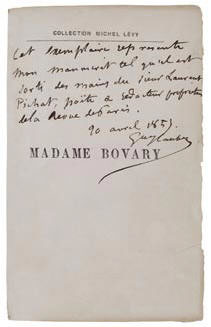 COLLECTION MICHEL LÉVY
Cet exemplaire représente
mon manuscrit tel qu'il est
sorti des mains du sieur Laurent
Pichat, poëte & rédacteur propriétaire
de la Revue de Paris.
20 avril 1857.
Gve Flaubert
MADAME BOVARY